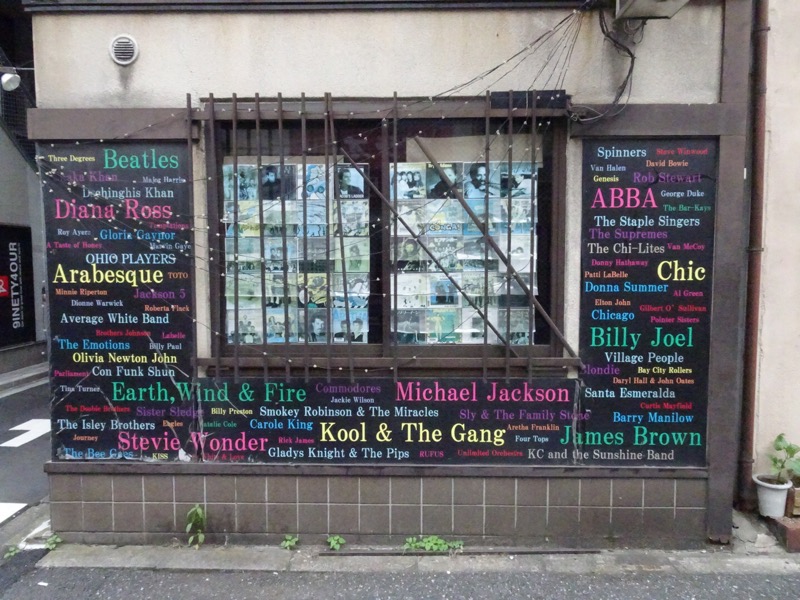 Three Degrees Beatles
Chaka Khan Major Harris
Dschinghis Khan
Diana Ross
Roy Ayers Gloria Gaynor
A Taste of Honey Marvin Gaye
OHIO PLAYERS
Arabesque TOTO
Minnie Riperton Jackson 5
Dionne Warwick Roberta Flack
Average White Band
Brothers Johnson Labelle
The Emotions Billy Paul
Olivia Newton John
Parliament Con Funk Shun
Tina Turner Earth,Wind & Fire Commodores Michael Jackson
Jackie Wilson
The Doobie Brothers Sister Sledge Billy Preston Smokey Robinson & The Miracles Sly & The Family Stone
The Isley Brothers Eagles Natalie Cole Carole King Kool & The Gang Aretha Franklin
Journey Stevie Wonder Rick James Four Tops James Brown
The Bee Gees KISS Gladys Knight & The Pips RUFUS Unlimited Orchestra KC and the Sunshine Band
Spinners Steve Winwood
Van Halen David Bowie
Genesis Rob Stewart
ABBA George Duke
The Bar-Kays
The Staple Singers
The Supremes
The Chi-Lites Van McCoy
Donny Hathaway
Patti LaBelle Chic
Donna Summer Al Green
Elton John
Chicago Gilbert O' Sullivan
Pointer Sisters
Billy Joel
Village People
Blondie Bay City Rollers
Daryl Hall & John Oates
Santa Esmeralda
Curtis Mayfield
Barry Manilow
9INETY4OUR